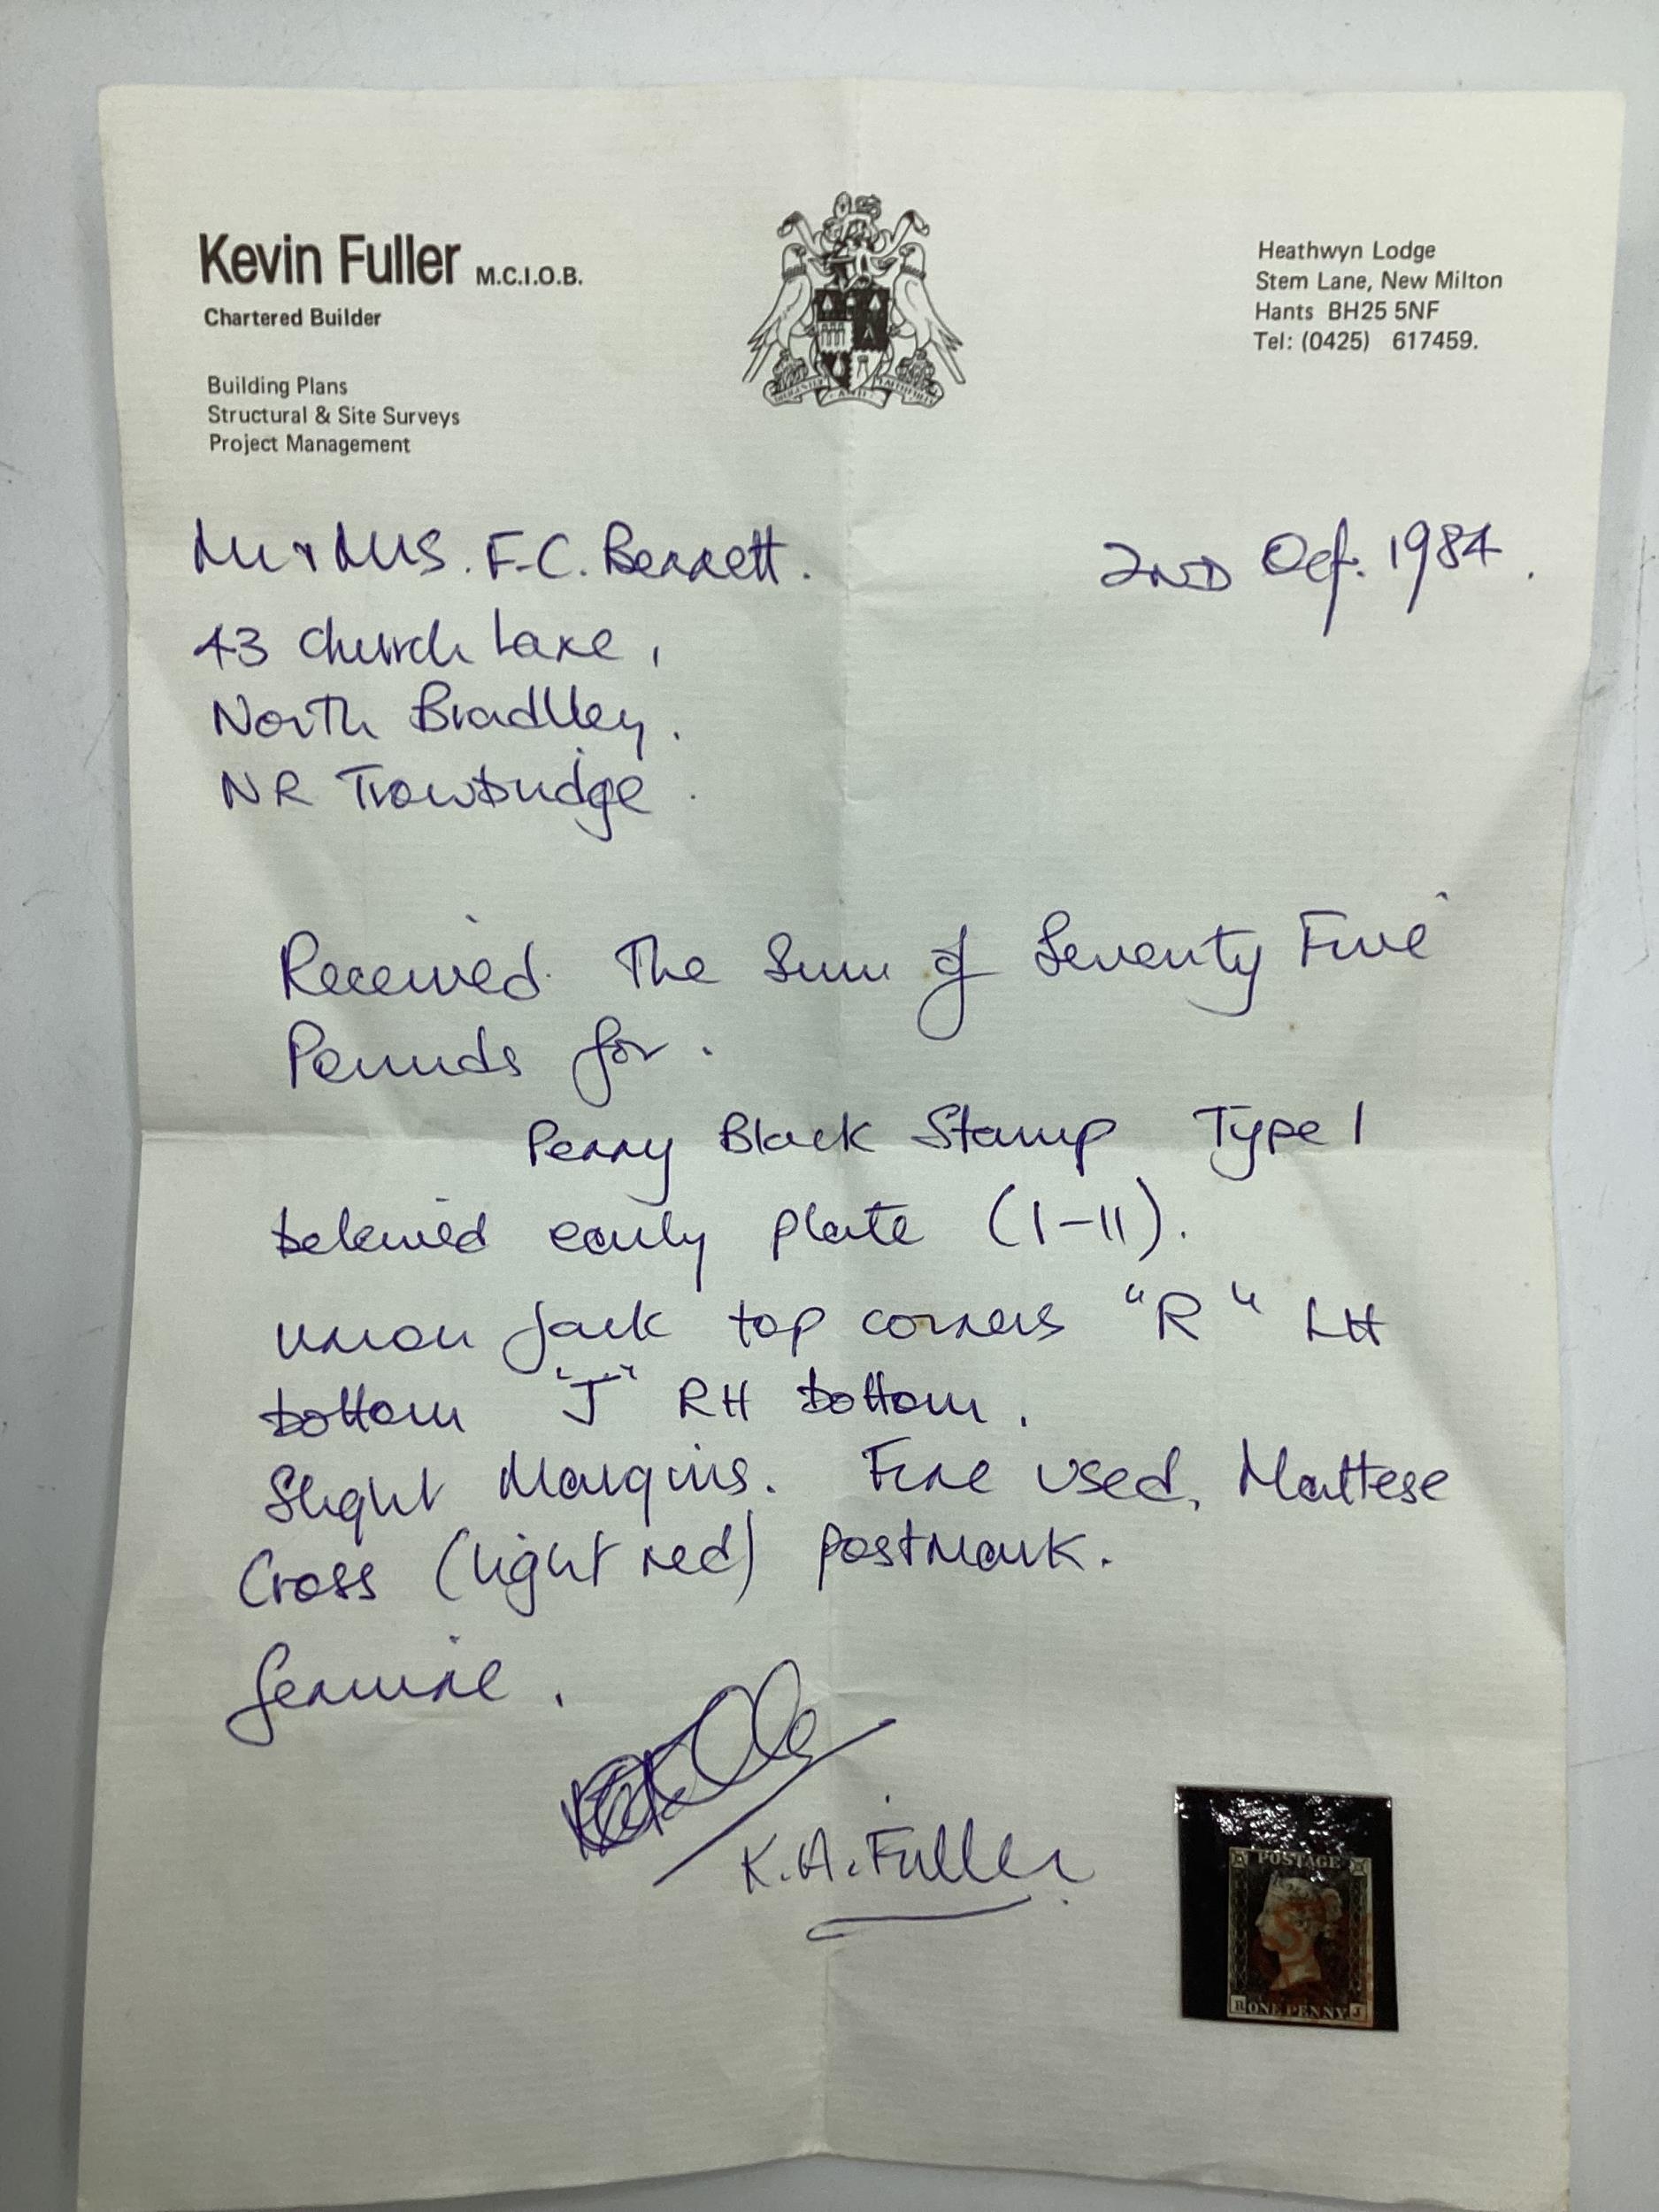 Kevin Fuller M.C.I.O.B.
Chartered Builder
Building Plans
Structural & Site Surveys
Project Management
Heathwyn Lodge
Stem Lane, New Milton
Hants BH25 5NF
Tel: (0425) 617459.
Mr & Mrs. F.C. Bennett.
2ND Oct. 1984.
43 Church Lane,
North Bradley.
NR Trowbridge.
Received The Sum of Seventy Five
Pounds for.
Penny Black Stamp Type 1
believed early plate (1-11).
union Jack top corners "R" LH
bottom "J" RH bottom.
Slight Margins. Fine used, Maltese
Cross (light red) postmark.
Genuine.
K.A. Fuller
POSTAGE
R ONE PENNY J